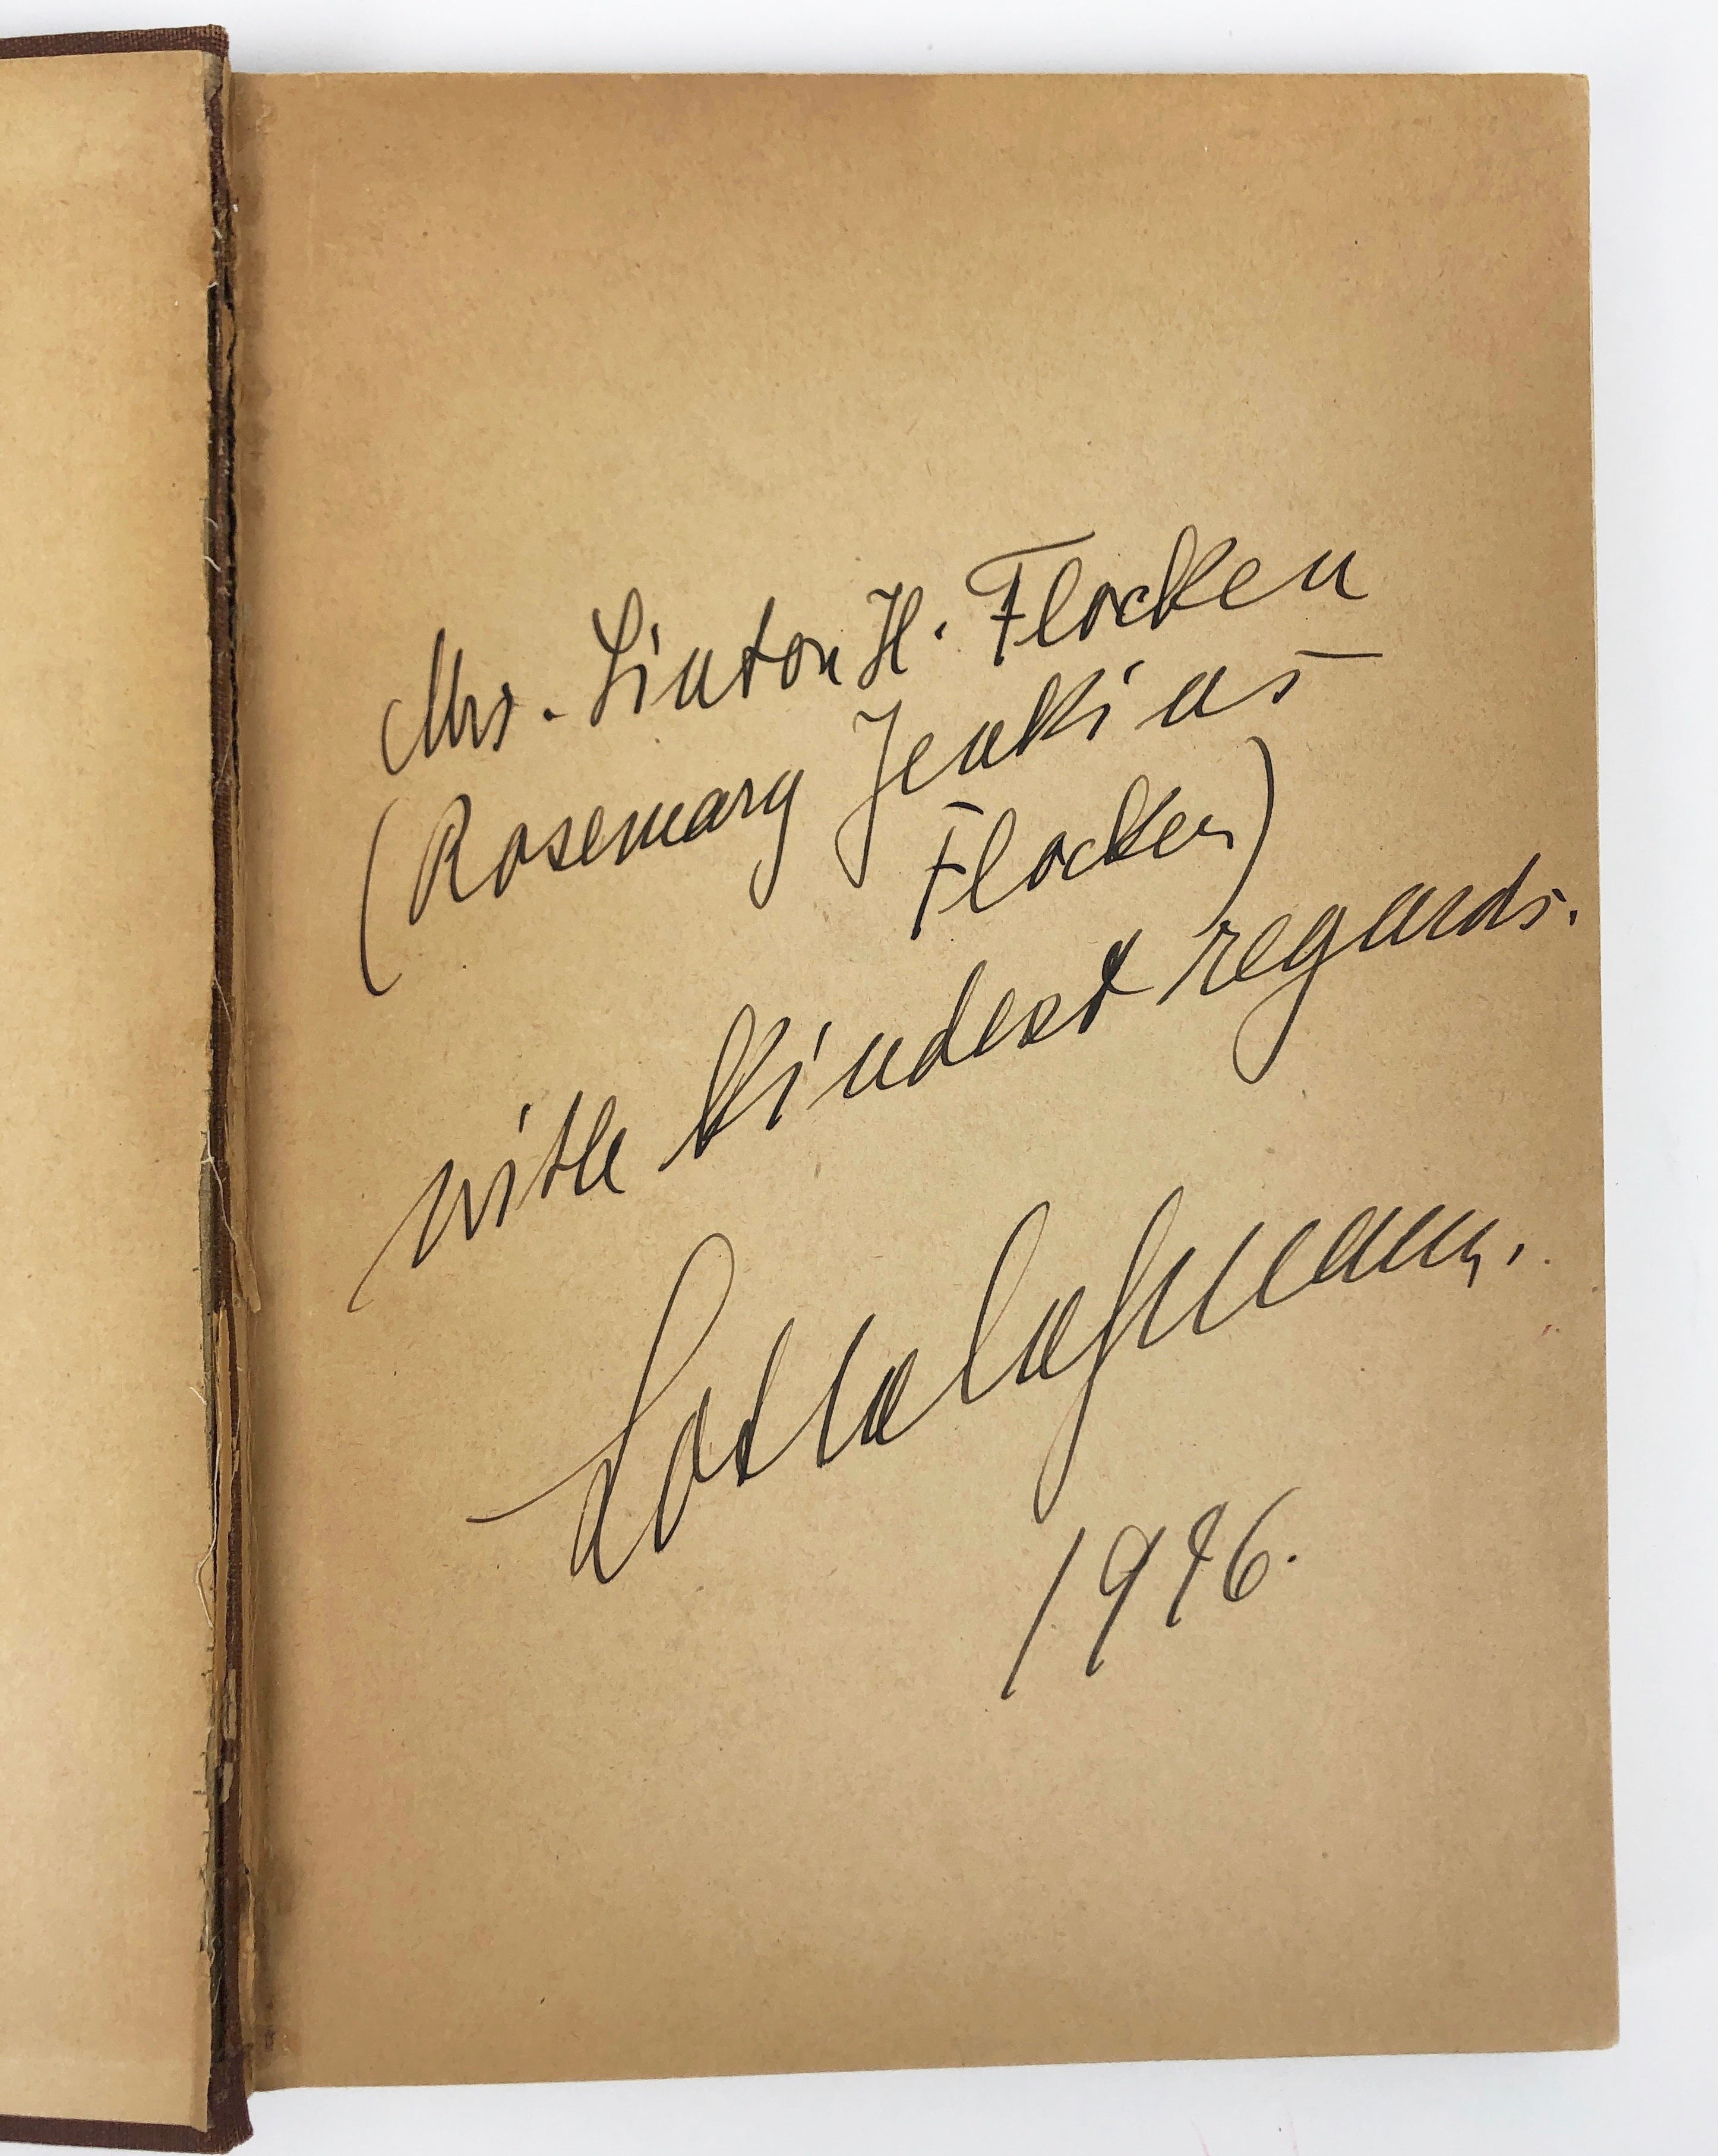 Mrs. Linton H. Flocken
(Rosemary Jenkins
Flocken)
with kindest regards.
Lotte Lehmann.
1946.